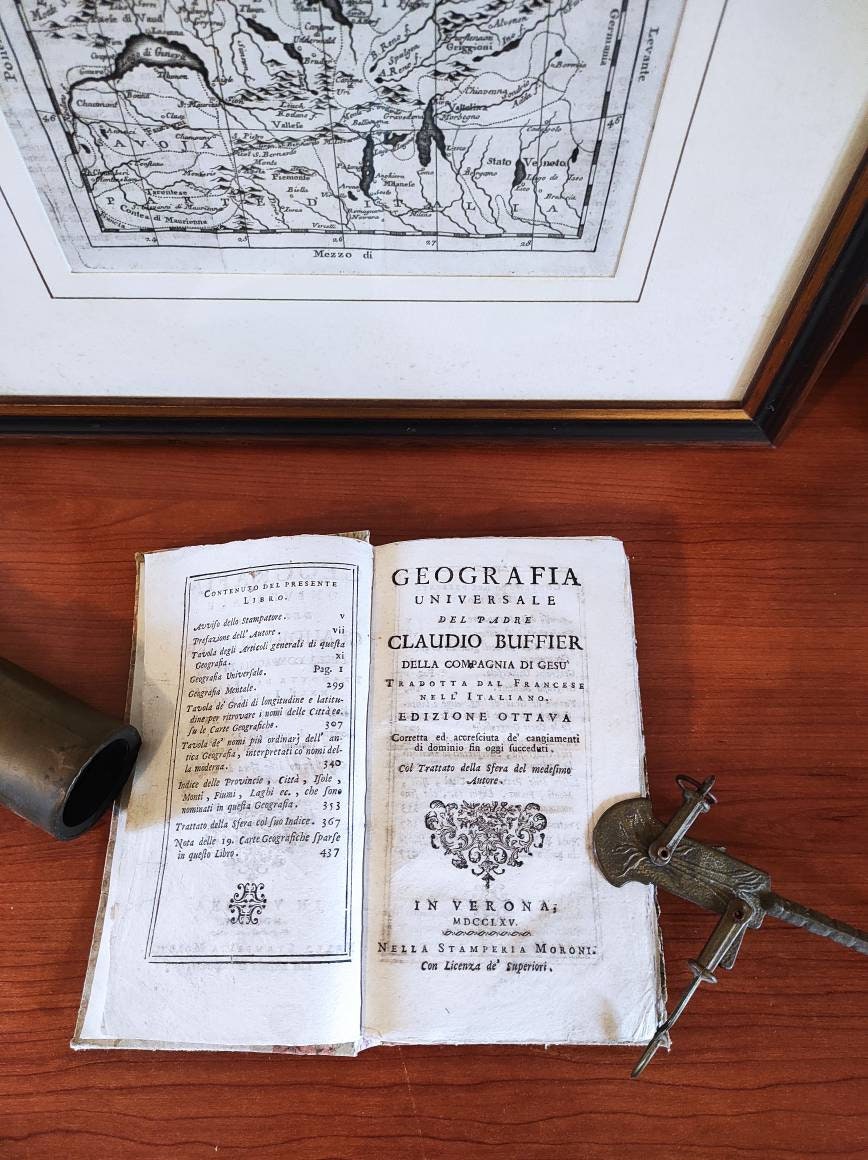 Lago di Geneva
Griggioni
Germania
Levante
Bormio
Chiavenna
Valtelina
Morbegno
Gravedona
Vallese
Chaumont
Bonna
S. Mauritio
46
46
SAVOIA
Tarentese
Piemonte
Biella
Contea di Maurienna
Stato Veneto
Bergamo
Como
Milanese
Novara
Milano
Vercelli
PARTE D'ITALIA
24 25 26 27 28
Mezzo dì
CONTENUTO DEL PRESENTE
LIBRO.
Avviso dello Stampatore. v
Prefazione dell' Autore. vii
Tavola degli Articoli generali di questa
Geografia. xi
Geografia Universale. Pag. 1
Geografia Mentale. 299
Tavola de' Gradi di longitudine e latitu-
dine; per ritrovare i nomi delle Città ec.
su le Carte Geografiche. 307
Tavola de' nomi più ordinarj dell' an-
tica Geografia, interpretati co' nomi del-
la moderna. 340
Indice delle Provincie, Città, Isole,
Monti, Fiumi, Laghi ec., che sono
nominati in questa Geografia. 353
Trattato della Sfera col suo Indice. 367
Nota delle 19. Carte Geografiche sparse
in questo Libro. 437
GEOGRAFIA
UNIVERSALE
DEL PADRE
CLAUDIO BUFFIER
DELLA COMPAGNIA DI GESU'
TRADOTTA DAL FRANCESE
NELL' ITALIANO.
EDIZIONE OTTAVA
Corretta ed accresciuta de' cangiamenti
di dominio fin oggi succeduti.
Col Trattato della Sfera del medesimo
Autore.
IN VERONA,
MDCCLXV.
NELLA STAMPERIA MORONI.
Con Licenza de' Superiori.